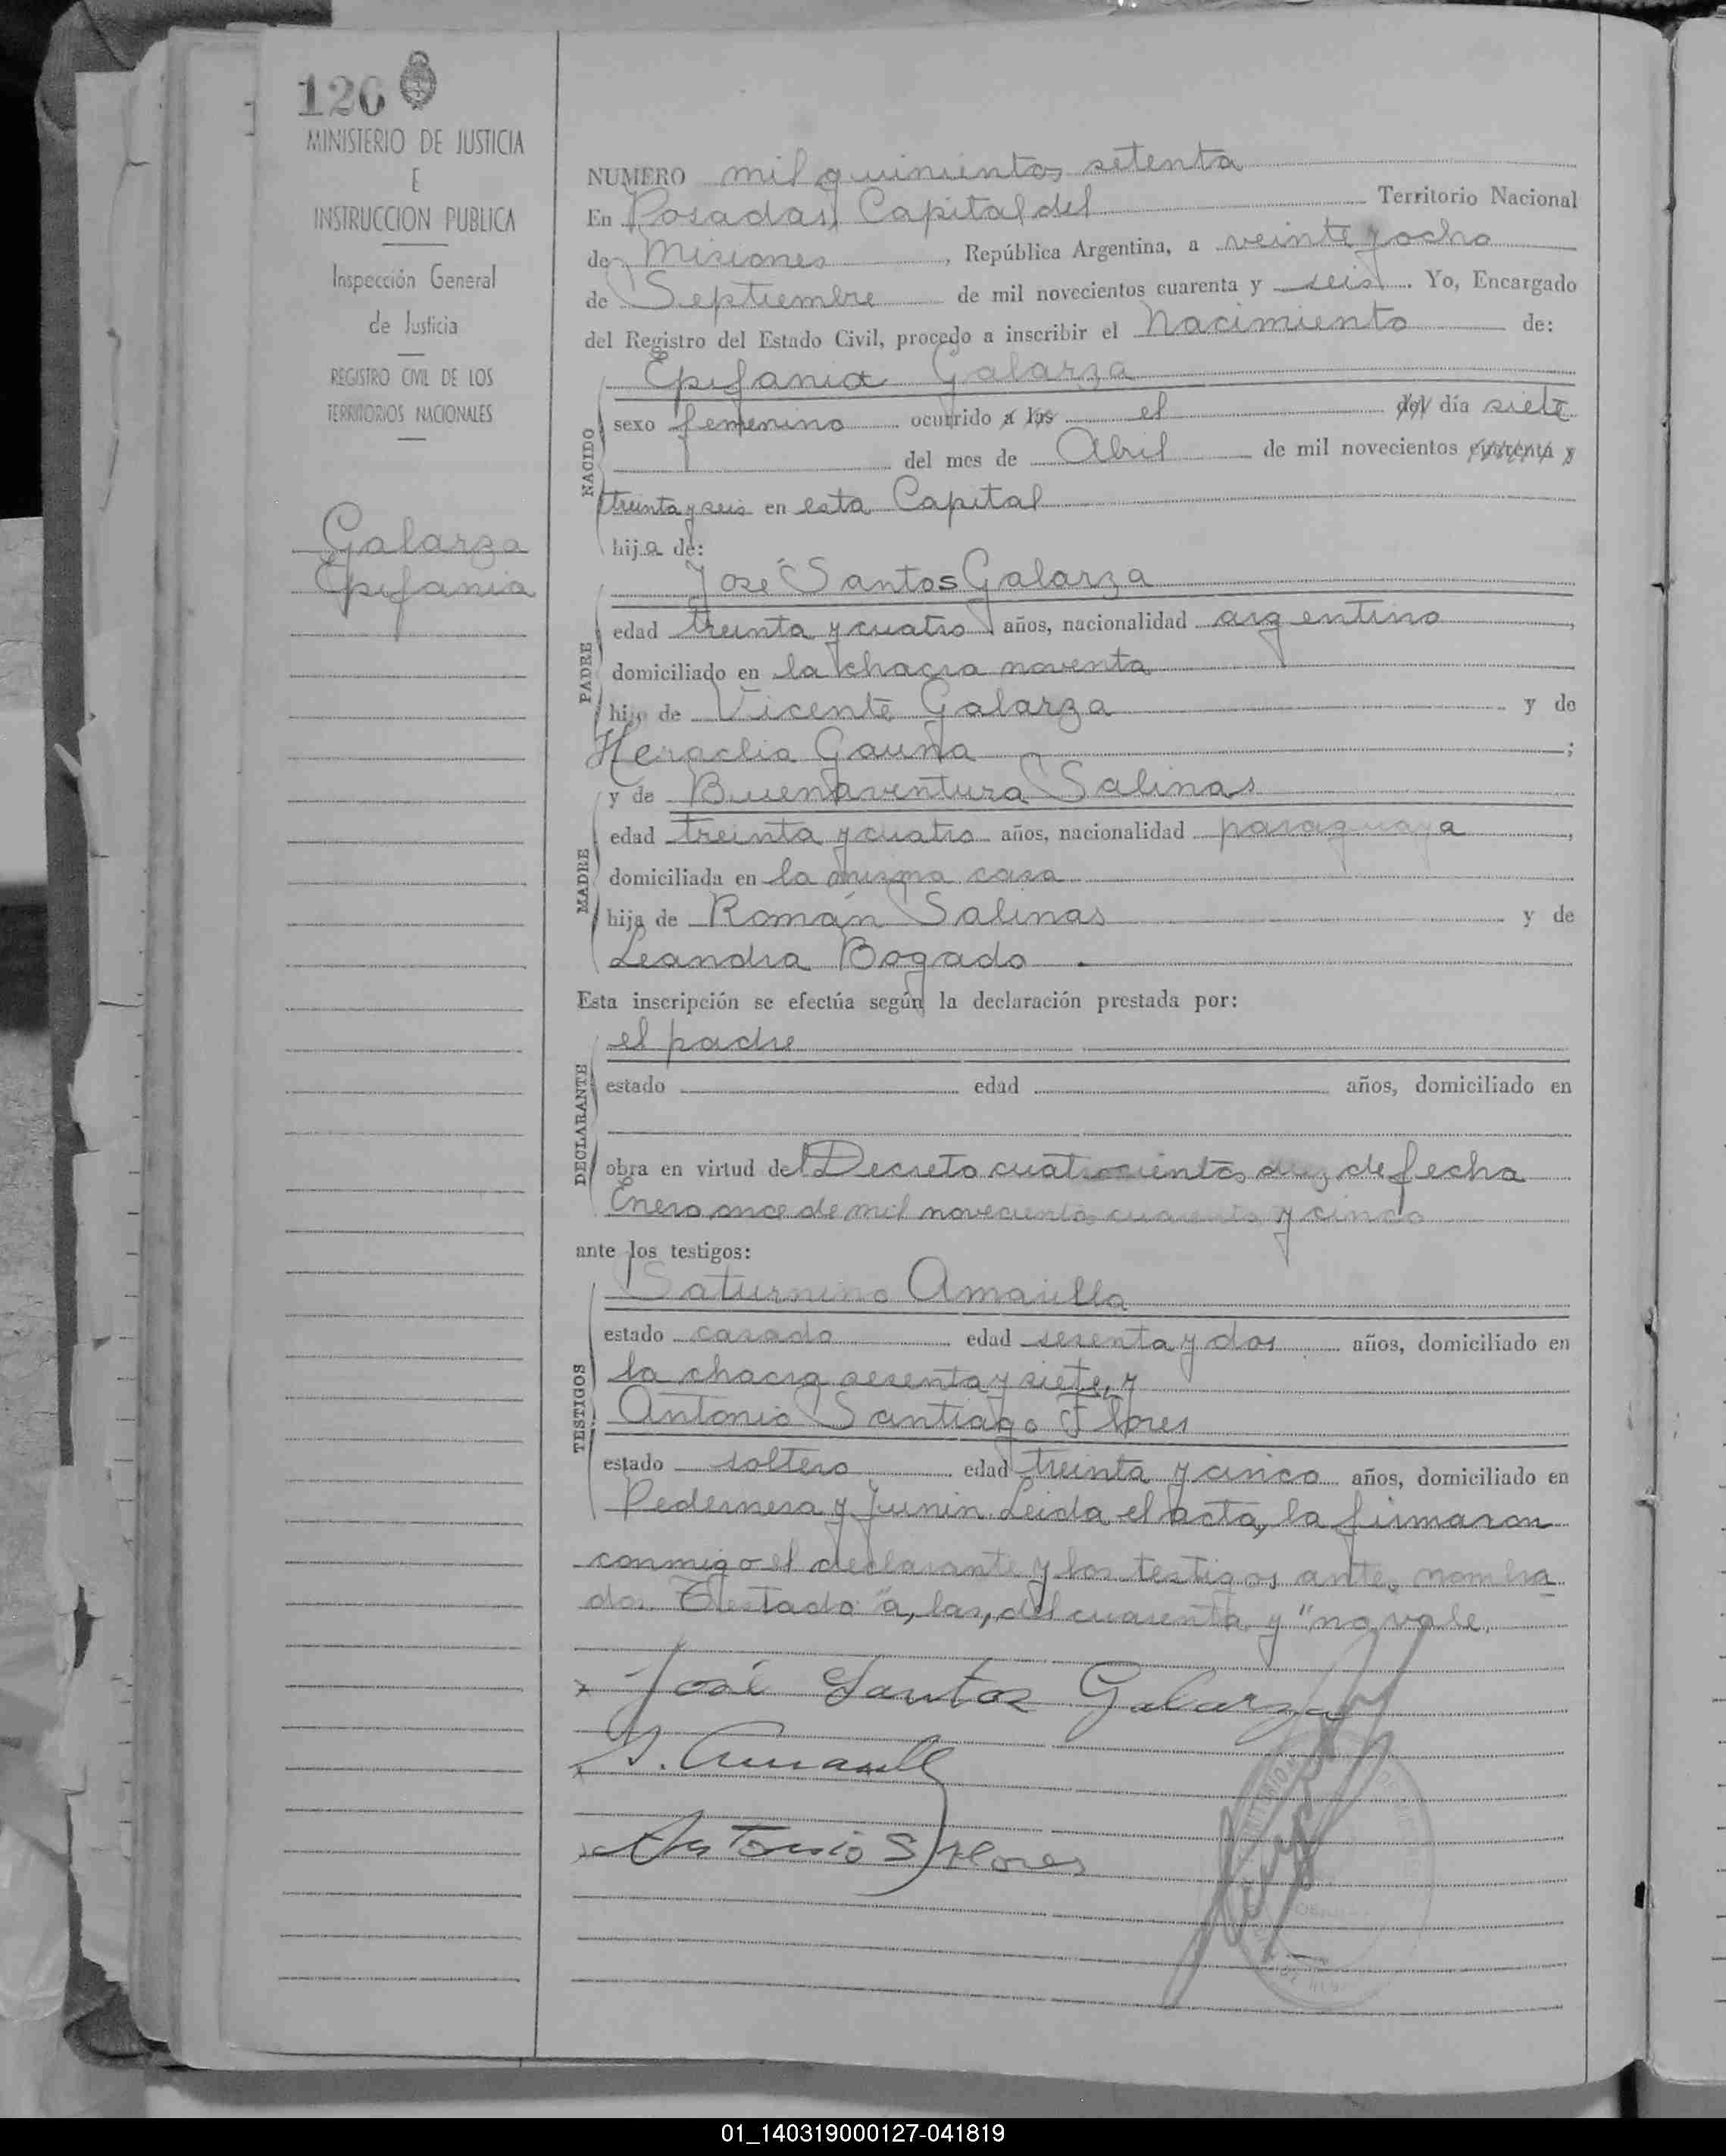 126
MINISTERIO DE JUSTICIA
E
INSTRUCCION PUBLICA
Inspección General
de Justicia
REGISTRO CIVIL DE LOS
TERRITORIOS NACIONALES
Galarza
Epifania
NUMERO mil quinientos setenta
En Posadas, Capital del Territorio Nacional
de Misiones, República Argentina, a veinte y ocho
de Septiembre de mil novecientos cuarenta y seis. Yo, Encargado
del Registro del Estado Civil, procedo a inscribir el Nacimiento de:
NACIDO
Epifania Galarza
sexo femenino ocurrido a las el del día siete
del mes de Abril de mil novecientos cuarenta y
treinta y seis en esta Capital
hija de:
PADRE
José Santos Galarza
edad treinta y cuatro años, nacionalidad argentino,
domiciliado en la chacra noventa
hijo de Vicente Galarza y de
Heraclia Gauna;
MADRE
y de Buenaventura Salinas
edad treinta y cuatro años, nacionalidad paraguaya,
domiciliada en la misma casa
hija de Román Salinas y de
Leandra Bogado.
Esta inscripción se efectúa según la declaración prestada por:
DECLARANTE
el padre
estado edad años, domiciliado en
obra en virtud del Decreto cuatrocientos diez de fecha
Enero once de mil novecientos cuarenta y cinco
ante los testigos:
TESTIGOS
Saturnino Amarilla
estado casado edad sesenta y dos años, domiciliado en
la chacra sesenta y siete, y
Antonio Santiago Flores
estado soltero edad treinta y cinco años, domiciliado en
Pedernera y Junin. Leida el acta, la firmaron
conmigo el declarante y los testigos antes nombra
dos. Testado "a, las, del cuarenta y" no vale.
José Santos Galarza
S. Amarill
Antonio S Flores
01_140319000127-041819